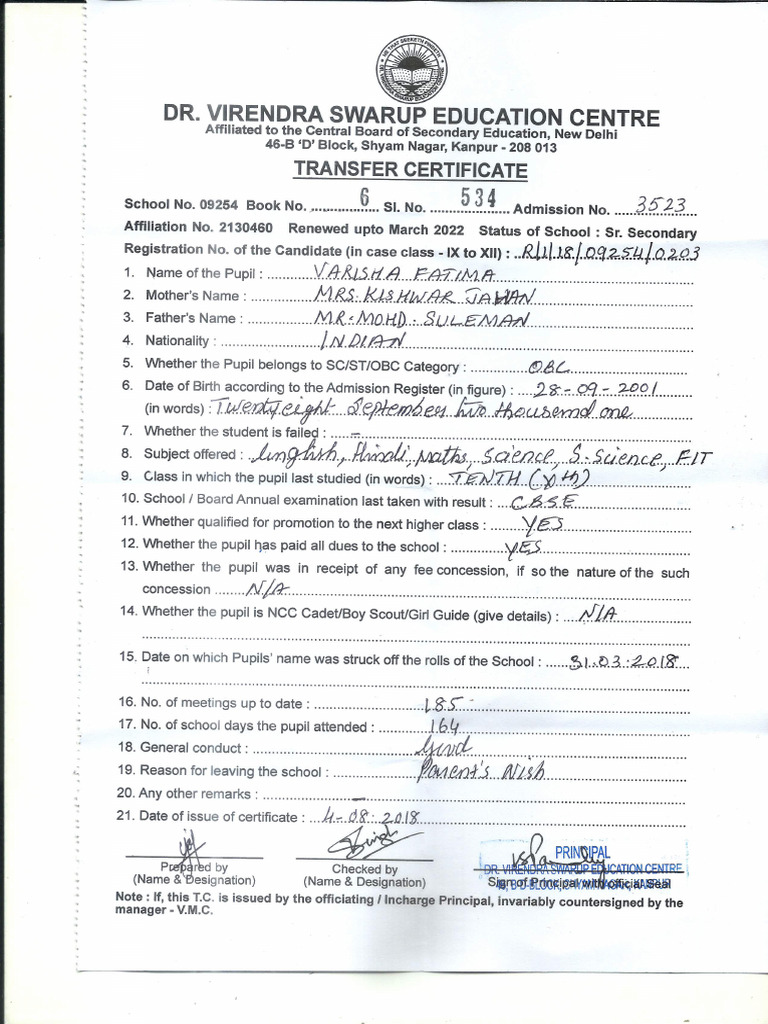 DR. VIRENDRA SWARUP EDUCATION CENTRE
Affiliated to the Central Board of Secondary Education, New Delhi
46-B 'D' Block, Shyam Nagar, Kanpur - 208 013
TRANSFER CERTIFICATE
School No. 09254 Book No. 6 Sl. No. 534 Admission No. 3523
Affiliation No. 2130460 Renewed upto March 2022 Status of School : Sr. Secondary
Registration No. of the Candidate (in case class - IX to XII) : R/1/18/09254/0203
1. Name of the Pupil : VARISHA FATIMA
2. Mother's Name : MRS. KISHWAR JAHAN
3. Father's Name : MR. MOHD. SULEMAN
4. Nationality : INDIAN
5. Whether the Pupil belongs to SC/ST/OBC Category : OBC
6. Date of Birth according to the Admission Register (in figure) : 28-09-2001
(in words) : Twenty eight September two thousand one
7. Whether the student is failed : -
8. Subject offered : English, Hindi, Maths, Science, S.Science, FIT
9. Class in which the pupil last studied (in words) : TENTH (Xth)
10. School / Board Annual examination last taken with result : CBSE
11. Whether qualified for promotion to the next higher class : YES
12. Whether the pupil has paid all dues to the school : YES
13. Whether the pupil was in receipt of any fee concession, if so the nature of the such
concession N/A
14. Whether the pupil is NCC Cadet/Boy Scout/Girl Guide (give details) : N/A
15. Date on which Pupils' name was struck off the rolls of the School : 31.03.2018
16. No. of meetings up to date : 185
17. No. of school days the pupil attended : 164
18. General conduct : Good
19. Reason for leaving the school : Parent's Wish
20. Any other remarks : -
21. Date of issue of certificate : 4-08-2018
PRINCIPAL
DR. VIRENDRA SWARUP EDUCATION CENTRE
Prepared by Checked by Sign of Principal with official Seal
(Name & Designation) (Name & Designation)
Note : If, this T.C. is issued by the officiating / Incharge Principal, invariably countersigned by the
manager - V.M.C.